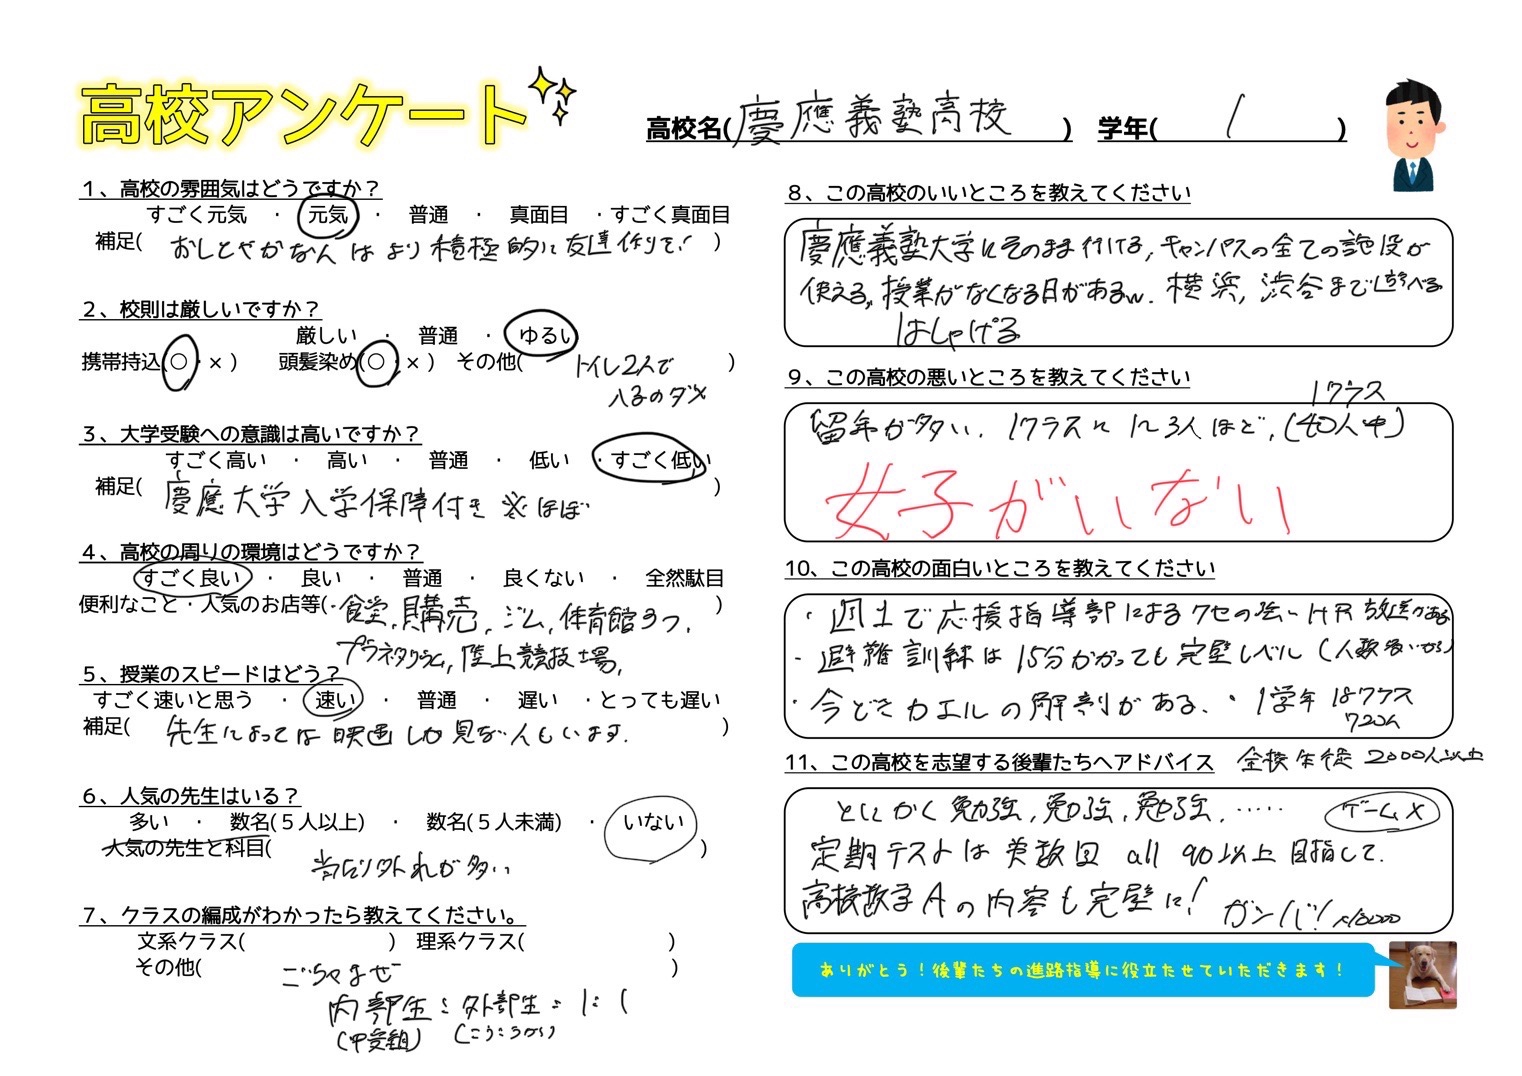 高校アンケート
高校名(慶應義塾高校) 学年(1)
1、高校の雰囲気はどうですか？
すごく元気 ・ 元気 ・ 普通 ・ 真面目 ・すごく真面目
補足(おしとやかなん はより積極的に友達作りを！)
2、校則は厳しいですか？
厳しい ・ 普通 ・ ゆるい
携帯持込(○・×) 頭髪染め(○・×) その他(トイレ2人で
入るのダメ)
3、大学受験への意識は高いですか？
すごく高い ・ 高い ・ 普通 ・ 低い ・すごく低い
補足(慶應大学入学保障付き ※ほぼ)
4、高校の周りの環境はどうですか？
すごく良い ・ 良い ・ 普通 ・ 良くない ・ 全然駄目
便利なこと・人気のお店等(・食堂,購売,ジム,体育館3つ,
プラネタリウム,陸上競技場,)
5、授業のスピードはどう？
すごく速いと思う ・ 速い ・ 普通 ・ 遅い ・とっても遅い
補足(先生によっては映画しか見ない人もいます.)
6、人気の先生はいる？
多い ・ 数名(５人以上) ・ 数名(５人未満) ・ いない
人気の先生と科目(当たり外れが多い)
7、クラスの編成がわかったら教えてください。
文系クラス( ) 理系クラス( )
その他(ごちゃまぜ)
内部生：外部生＝1:1
(中受組) (こうこうから)
8、この高校のいいところを教えてください
慶應義塾大学にそのまま行ける,キャンパスの全ての施設が
使える,授業がなくなる日があるw.横浜,渋谷まで遊べる
はしゃげる
9、この高校の悪いところを教えてください
1クラス
留年が多い.1クラスに1~3人ほど,(40人中)
女子がいない
10、この高校の面白いところを教えてください
・週1で応援指導部によるクセの強いHR放送がある
・避難訓練は15分かかっても完璧レベル(人数多いから)
・今どきカエルの解剖がある.・1学年18クラス
720人
11、この高校を志望する後輩たちへアドバイス 全校生徒2000人以上
とにかく勉強,勉強,勉強,…… ゲーム×
定期テストは英数国 all 90以上目指して.
高校数学Aの内容も完璧に! ガンバ!
ありがとう！後輩たちの進路指導に役立たせていただきます！